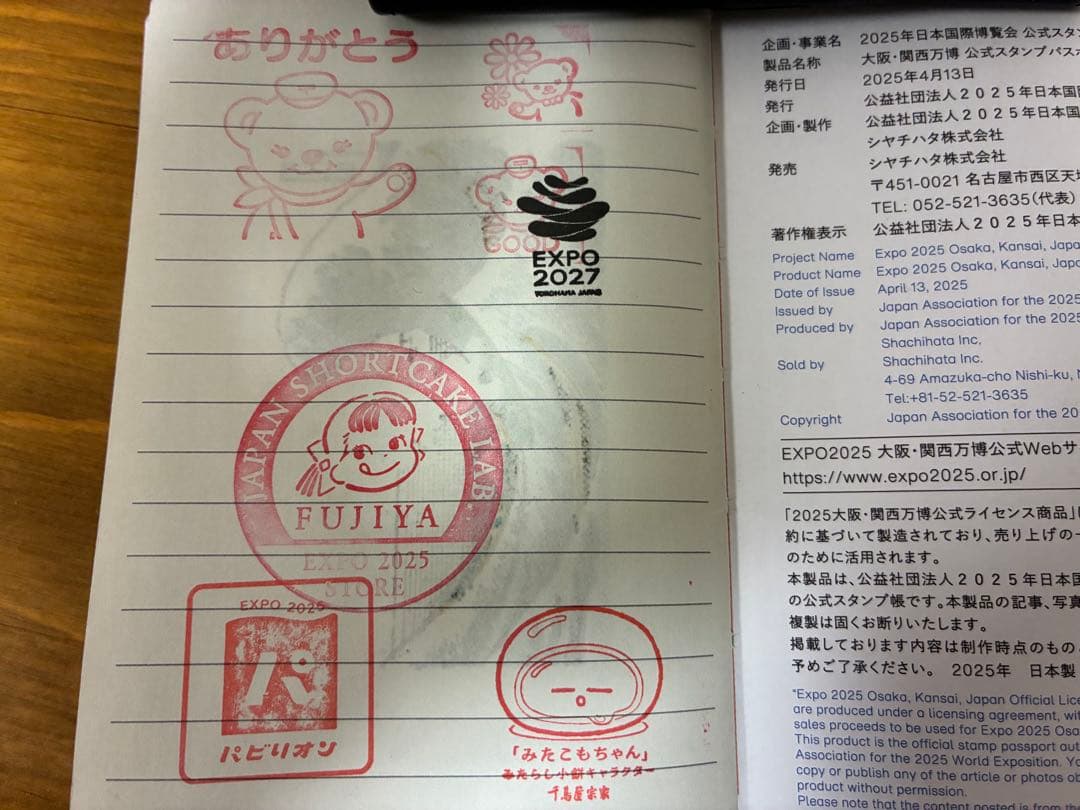 ありがとう
GOOD
EXPO
2027
YOKOHAMA JAPAN
JAPAN SHORTCAKE LAB.
FUJIYA
EXPO 2025
STORE
EXPO 2025
パ
パビリオン
「みたこもちゃん」
みたらし小餅キャラクター
千鳥屋宗家
企画・事業名 2025年日本国際博覧会 公式スタン
製品名称 大阪・関西万博 公式スタンプパスポ
発行日 2025年4月13日
発行 公益社団法人2025年日本国
企画・製作 公益社団法人2025年日本国
シヤチハタ株式会社
発売 シヤチハタ株式会社
〒451-0021 名古屋市西区天塚
TEL: 052-521-3635(代表)
著作権表示 公益社団法人2025年日本
Project Name Expo 2025 Osaka, Kansai, Japa
Product Name Expo 2025 Osaka, Kansai, Japa
Date of Issue April 13, 2025
Issued by Japan Association for the 2025
Produced by Japan Association for the 2025
Shachihata Inc,
Sold by Shachihata Inc.
4-69 Amazuka-cho Nishi-ku, N
Tel:+81-52-521-3635
Copyright Japan Association for the 20
EXPO2025 大阪・関西万博公式Webサ
https://www.expo2025.or.jp/
「2025大阪・関西万博公式ライセンス商品」
約に基づいて製造されており、売り上げの一
のために活用されます。
本製品は、公益社団法人2025年日本国
の公式スタンプ帳です。本製品の記事、写真
複製は固くお断りいたします。
掲載しております内容は制作時点のもの
予めご了承ください。 2025年 日本製
"Expo 2025 Osaka, Kansai, Japan Official Lice
are produced under a licensing agreement, wit
sales proceeds to be used for Expo 2025 Osa
This product is the official stamp passport aut
Association for the 2025 World Exposition. Yo
copy or publish any of the article or photos of
product without permission.
Please note that the content posted is from the